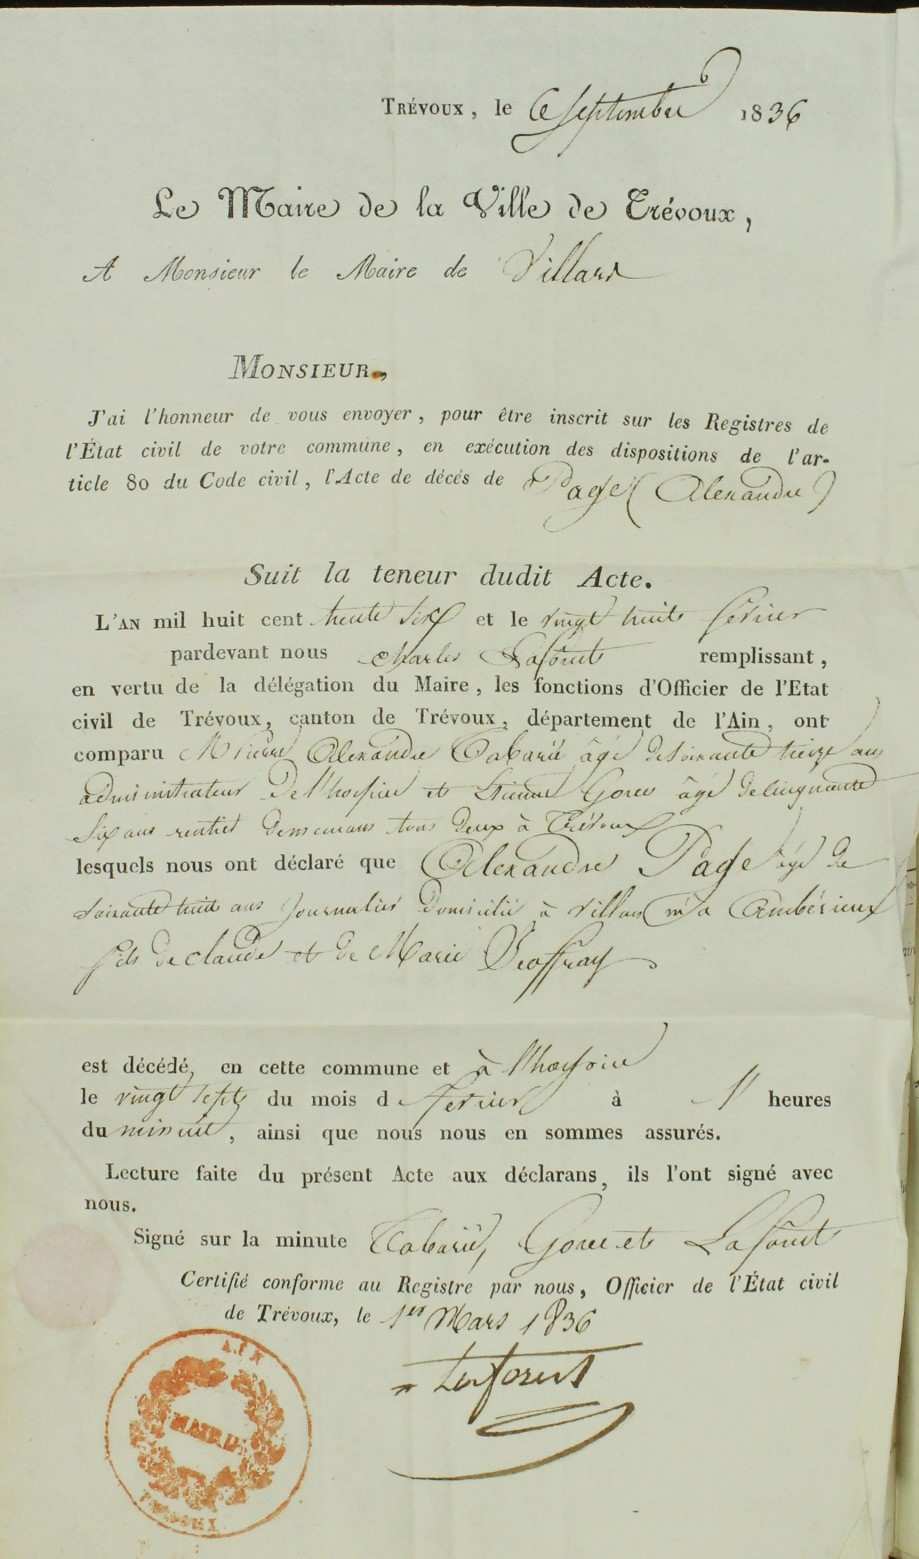 TRÉVOUX, le 6 septembre 1836
Le Maire de la Ville de Trévoux,
A Monsieur le Maire de Villars
MONSIEUR,
J'ai l'honneur de vous envoyer, pour être inscrit sur les Registres de
l'État civil de votre commune, en exécution des dispositions de l'ar-
ticle 80 du Code civil, l'Acte de décés de Page (Alexandre)
Suit la teneur dudit Acte.
L'AN mil huit cent trente six et le vingt huit février
pardevant nous Charles Lafont remplissant,
en vertu de la délégation du Maire, les fonctions d'Officier de l'Etat
civil de Trévoux, canton de Trévoux, département de l'Ain, ont
comparu M Pierre Alexandre Tabarié âgé de soixante treize ans
administrateur De l'hospice et Etienne âgé de cinquante
Six ans rentier demeurans tous deux à Trévoux
lesquels nous ont déclaré que Alexandre Page âgé de
soixante huit ans journalier domicilié à villars né a Ambérieux
fils de claude et de Marie Geoffray
est décédé, en cette commune et à l'hospice
le vingt sept du mois d février à 11 heures
du minuit, ainsi que nous nous en sommes assurés.
Lecture faite du présent Acte aux déclarans, ils l'ont signé avec
nous.
Signé sur la minute Tabarié, et Lafont
Certifié conforme au Registre par nous, Officier de l'État civil
de Trévoux, le 1er Mars 1836
Lafont
AIN
MAIRIE
TRÉVOUX